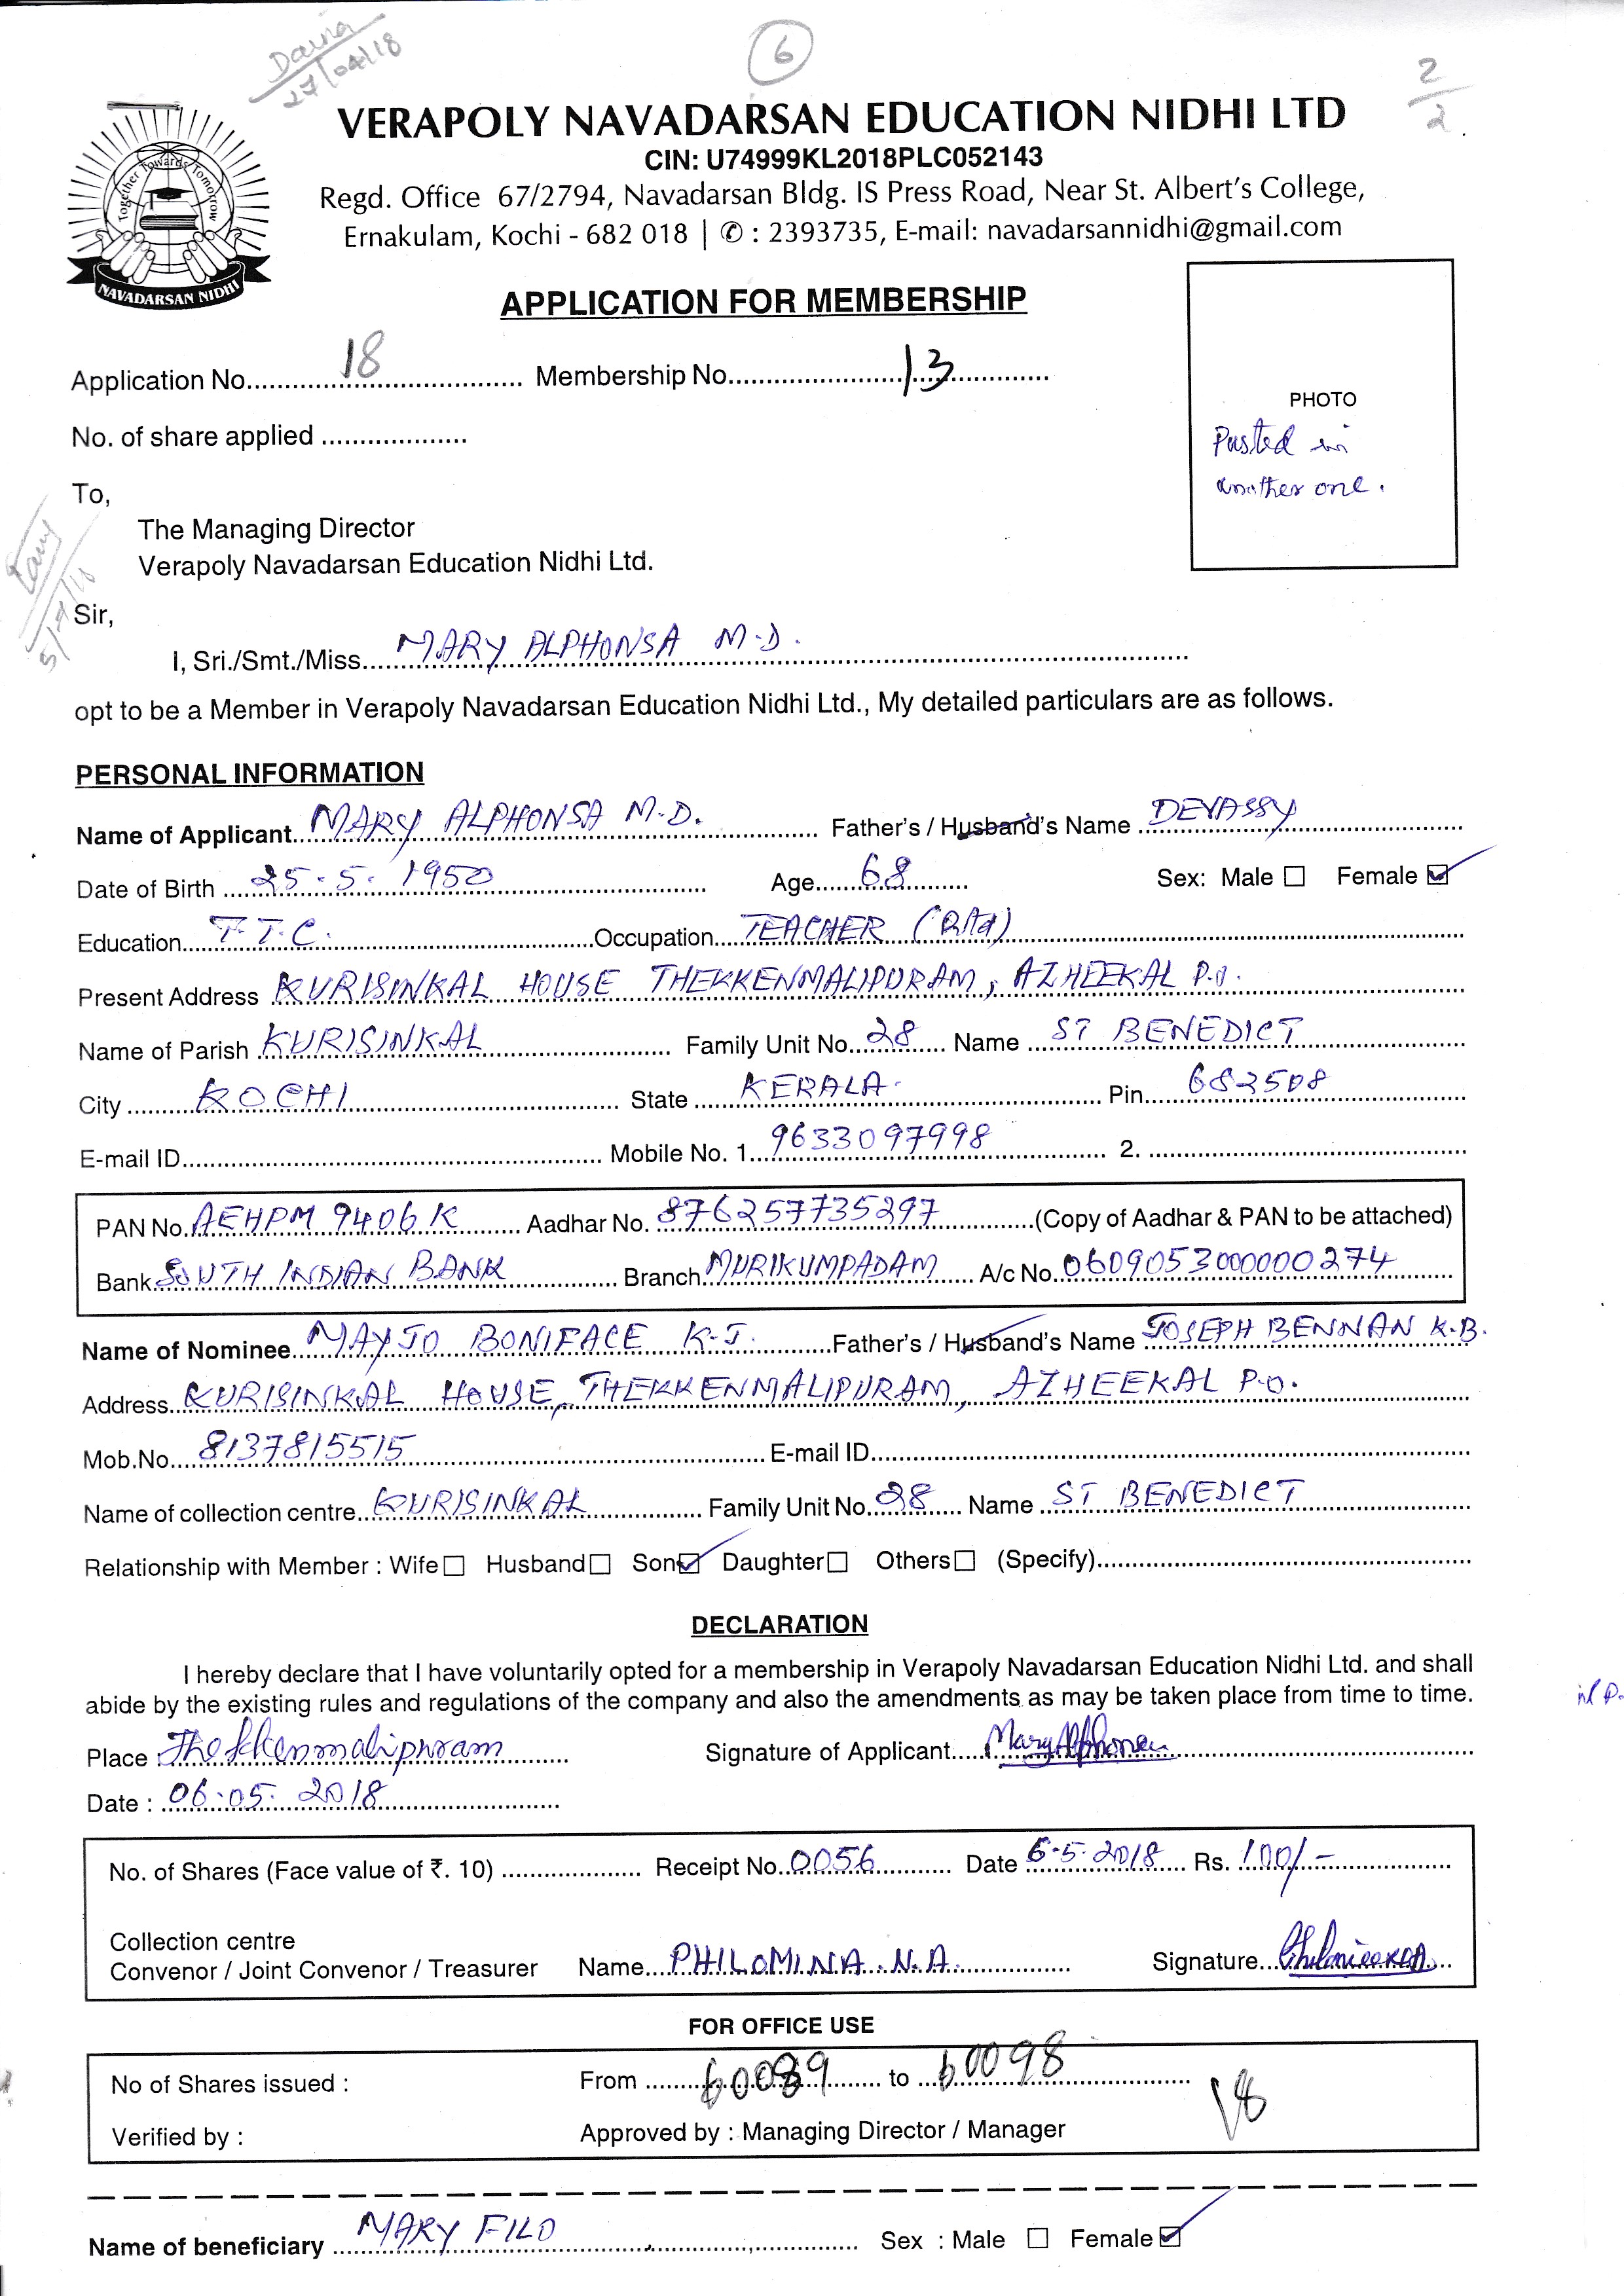 Davna
27/04/18
6
2/2
VERAPOLY NAVADARSAN EDUCATION NIDHI LTD
CIN: U74999KL2018PLC052143
Regd. Office 67/2794, Navadarsan Bldg. IS Press Road, Near St. Albert's College,
Ernakulam, Kochi - 682 018 | ✆ : 2393735, E-mail: navadarsannidhi@gmail.com
Together Towards Tomorrow
NAVADARSAN NIDHI
APPLICATION FOR MEMBERSHIP
Application No. 18 Membership No. 13
No. of share applied
PHOTO
Pasted in
another one.
To,
The Managing Director
Verapoly Navadarsan Education Nidhi Ltd.
Sir,
I, Sri./Smt./Miss. MARY ALPHONSA M.D.
opt to be a Member in Verapoly Navadarsan Education Nidhi Ltd., My detailed particulars are as follows.
PERSONAL INFORMATION
Name of Applicant MARY ALPHONSA M.D. Father's / Husband's Name DEVASSY
Date of Birth 25.5.1950 Age 68 Sex: Male ☐ Female ☑
Education T.T.C. Occupation TEACHER (Rttd)
Present Address KURISINKAL HOUSE THEKKENMALIPURAM, AZHEEKAL P.O.
Name of Parish KURISINKAL Family Unit No. 28 Name ST BENEDICT
City KOCHI State KERALA. Pin 682508
E-mail ID Mobile No. 1. 9633097998 2.
PAN No. AEHPM 9406 K Aadhar No. 876257735297 (Copy of Aadhar & PAN to be attached)
Bank SOUTH INDIAN BANK Branch MURIKUMPADAM A/c No. 0609053000000274
Name of Nominee MAYJO BONIFACE K.J. Father's / Husband's Name JOSEPH BENNAN K.B.
Address KURISINKAL HOUSE, THEKKENMALIPURAM, AZHEEKAL P.O.
Mob.No. 8137815515 E-mail ID
Name of collection centre KURISINKAL Family Unit No. 28 Name ST BENEDICT
Relationship with Member : Wife ☐ Husband ☐ Son ☑ Daughter ☐ Others ☐ (Specify)
DECLARATION
I hereby declare that I have voluntarily opted for a membership in Verapoly Navadarsan Education Nidhi Ltd. and shall
abide by the existing rules and regulations of the company and also the amendments as may be taken place from time to time.
Place : Thekkenmalipuram Signature of Applicant Mary Alphonsa
Date : 06.05.2018
No. of Shares (Face value of ₹. 10) Receipt No. 0056 Date 6-5-2018 Rs. 100/-
Collection centre
Convenor / Joint Convenor / Treasurer Name PHILOMINA.N.A. Signature
FOR OFFICE USE
No of Shares issued : From 60089 to 60098 18
Verified by : Approved by : Managing Director / Manager
Name of beneficiary MARY FILO Sex : Male ☐ Female ☑